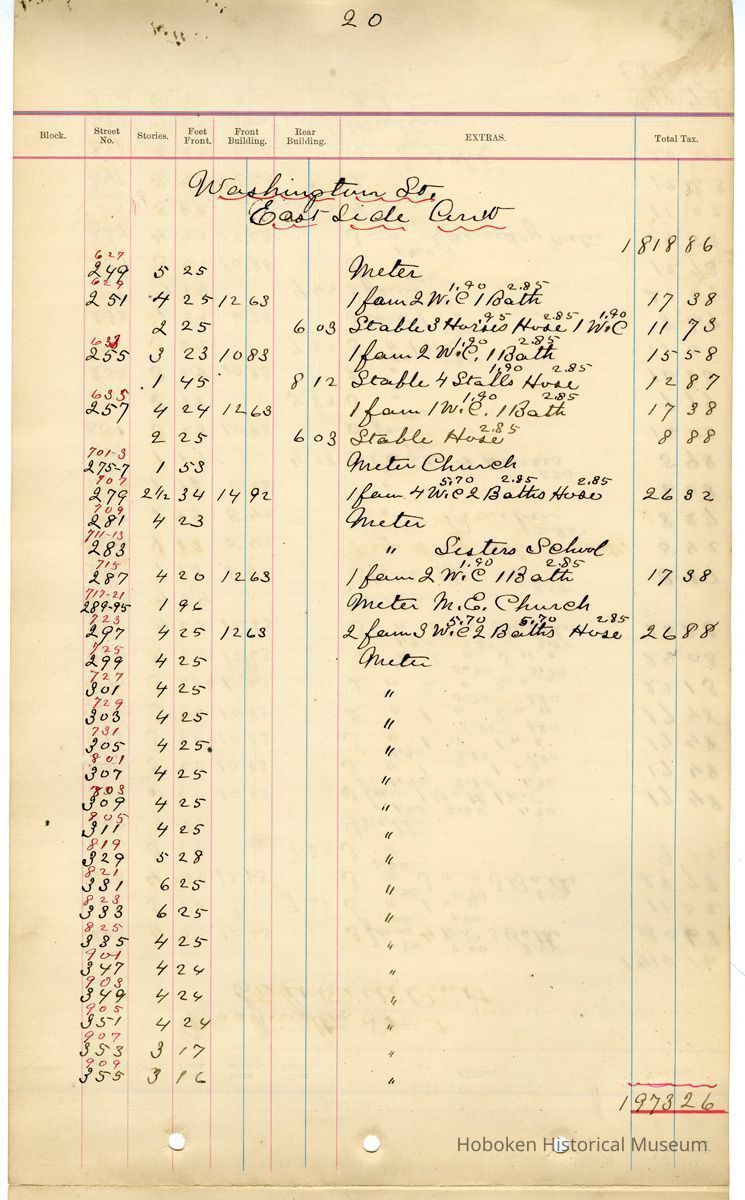 20
Block. Street No. Stories. Feet Front. Front Building. Rear Building. EXTRAS. Total Tax.
Washington St.
East Side Cont
1818 86
627
249 5 25 Meter
629 1.90 2.85
251 4 25 12 63 1 fam 2 W.C 1 Bath 17 38
95 2.85 1.90
2 25 6 03 Stable 3 Horses Hose 1 W.C 11 73
633 1.90 2.85
255 3 23 10 83 1 fam 2 W.C. 1 Bath 15 58
1.90 2.85
1 45 8 12 Stable 4 Stalls Hose 12 87
635 1.90 2.85
257 4 24 12 63 1 fam 1 W.C. 1 Bath 17 38
2.85
2 25 6 03 Stable Hose 8 88
701-3
275-7 1 53 Meter Church
707 5.70 2.85 2.85
279 2 1/2 34 14 92 1 fam 4 W.C 2 Baths Hose 26 32
709
281 4 23 Meter
711-13
283 " Sisters School
715 1.90 2.85
287 4 20 12 63 1 fam 2 W.C 1 Bath 17 38
717-21
289-95 1 96 Meter M.E. Church
723 5.70 5.70 2.85
297 4 25 12 63 2 fam 3 W.C 2 Baths Hose 26 88
725
299 4 25 Meter
727
301 4 25 "
729
303 4 25 "
731
305 4 25 "
801
307 4 25 "
803
309 4 25 "
805
311 4 25 "
819
329 5 28 "
821
331 6 25 "
823
333 6 25 "
825
335 4 25 "
901
347 4 24 "
903
349 4 24 "
905
351 4 24 "
907
353 3 17 "
909
355 3 16 "
1973 26
Hoboken Historical Museum